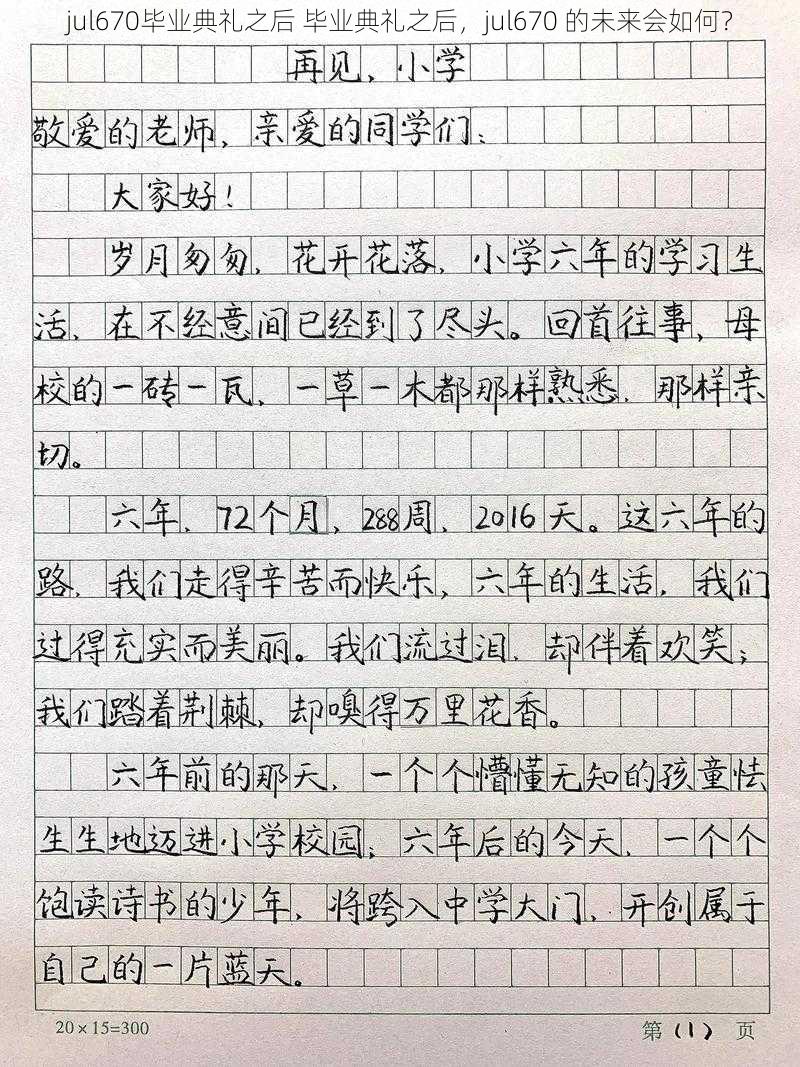 jul670毕业典礼之后 毕业典礼之后，jul670 的未来会如何？
再见，小学
敬爱的老师，亲爱的同学们：
大家好！
岁月匆匆，花开花落，小学六年的学习生
活，在不经意间已经到了尽头。回首往事，母
校的一砖一瓦，一草一木都那样熟悉，那样亲
切。
六年，72个月，288周，2016天。这六年的
路，我们走得辛苦而快乐，六年的生活，我们
过得充实而美丽。我们流过泪，却伴着欢笑；
我们踏着荆棘，却嗅得万里花香。
六年前的那天，一个个懵懂无知的孩童怯
生生地迈进小学校园；六年后的今天，一个个
饱读诗书的少年，将跨入中学大门，开创属于
自己的一片蓝天。
20×15=300
第（1）页